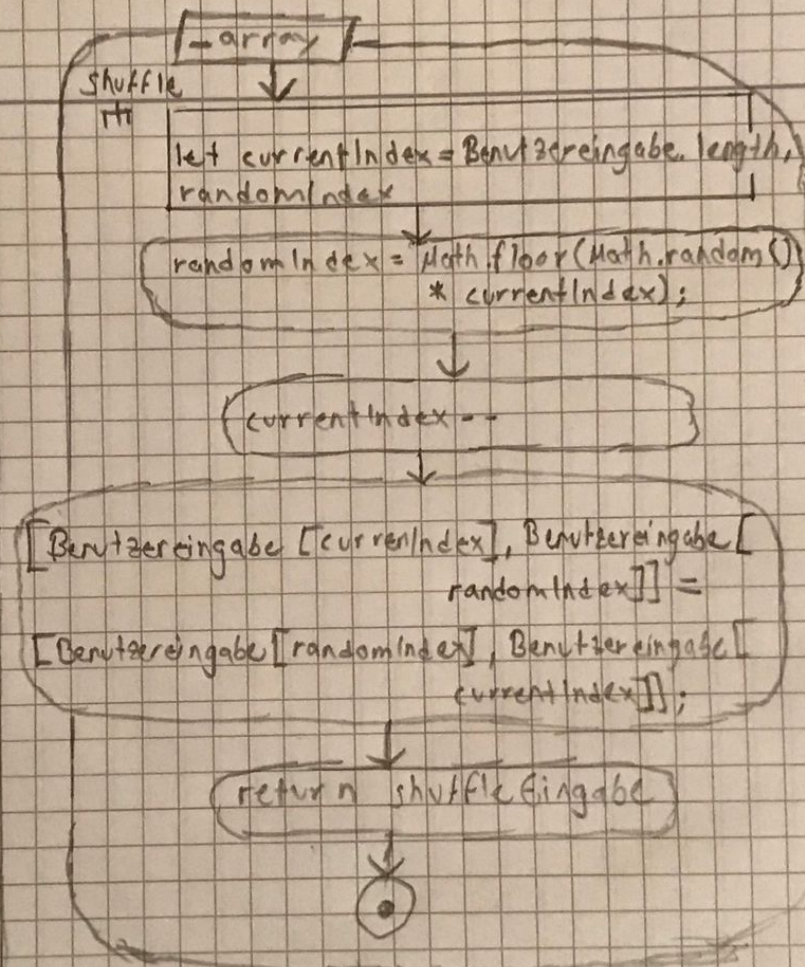 _array
shuffle
let currentIndex = Benutzereingabe.length,
randomIndex
randomIndex = Math.floor(Math.random()
* currentIndex);
currentIndex--
[Benutzereingabe [currenIndex], Benutzereingabe[
randomIndex]] =
[Benutzereingabe[randomIndex], Benutzereingabe[
currentIndex]];
return shuffleEingabe